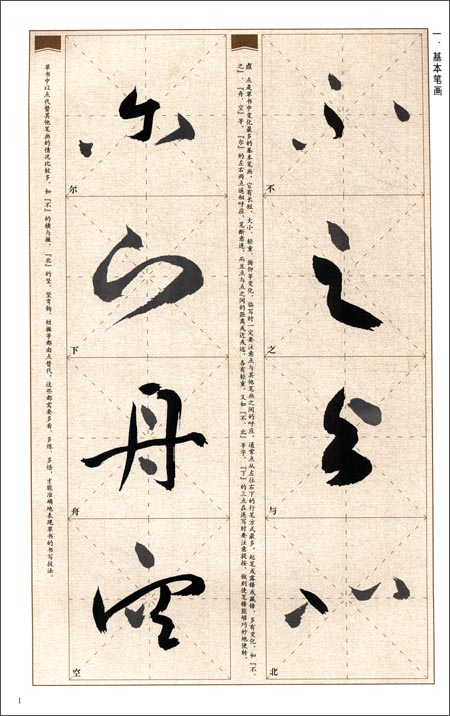 一、基本笔画
不
之
与
北
点 点是草书中变化最多的基本笔画，它有长短、大小、轻重、俯仰等变化，临写时一定要注意点与其他笔画之间的呼应。通常点从左往右下的行笔方式最多，起笔或露锋或藏锋，多有变化，如『不、
之』、『舟、空』等。『尔』的左右两点遥相呼应，笔断意连，而且点与点之间的距离或近或远，各有轻重。又如『不、北』等字，『下』的三点在连写时要注意提按，做到使笔锋能够巧妙地使转。
尔
下
舟
空
草书中以点代替其他笔画的情况比较多，如『不』的横与撇，『北』的竖、竖弯钩、短撇等都由点替代。这些都需要多看、多练、多悟，才能准确地表现草书的书写技法。
1